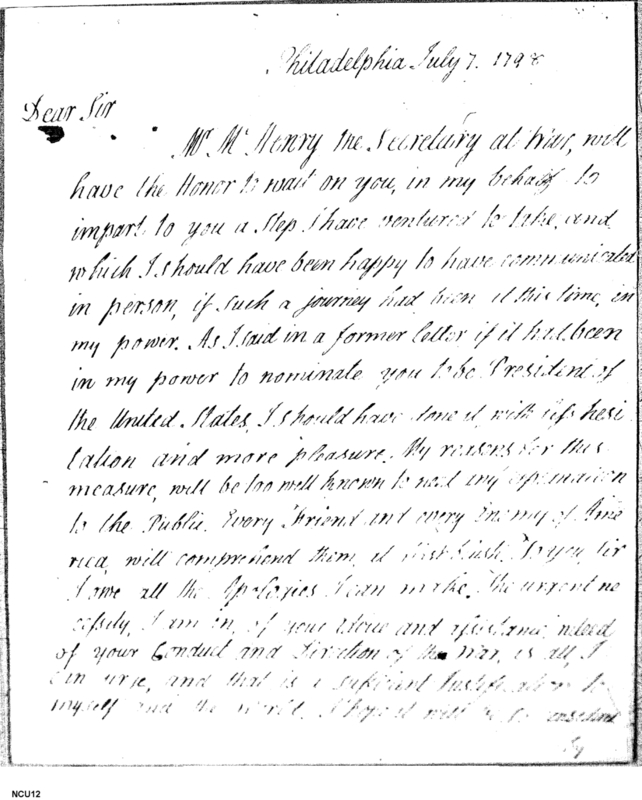 Philadelphia July 7. 1798
Dear Sir
Mr. McHenry the Secretary at War, will
have the Honor to wait on you, in my behalf to
impart to you a Step I have ventured to take, and
which I should have been happy to have communicated
in person, if such a journey had been at this time, in
my power. As I said in a former letter if it had been
in my power to nominate you to be President of
the United States, I should have done it with less hesi
tation and more pleasure. My reasons for this
measure, will be too well known to need any explanation
to the Public. Every Friend and every Enemy of Ame
rica, will comprehend them, at first blush. To you, Sir
I owe all the Apologies I can make. The urgent ne
cessity, I am in, of your advice and assistance, indeed
of your Conduct and direction of the War, is all, I
can urge, and that is a sufficient Justification to
myself and the world. I hope it will be so considered
by
NCU12